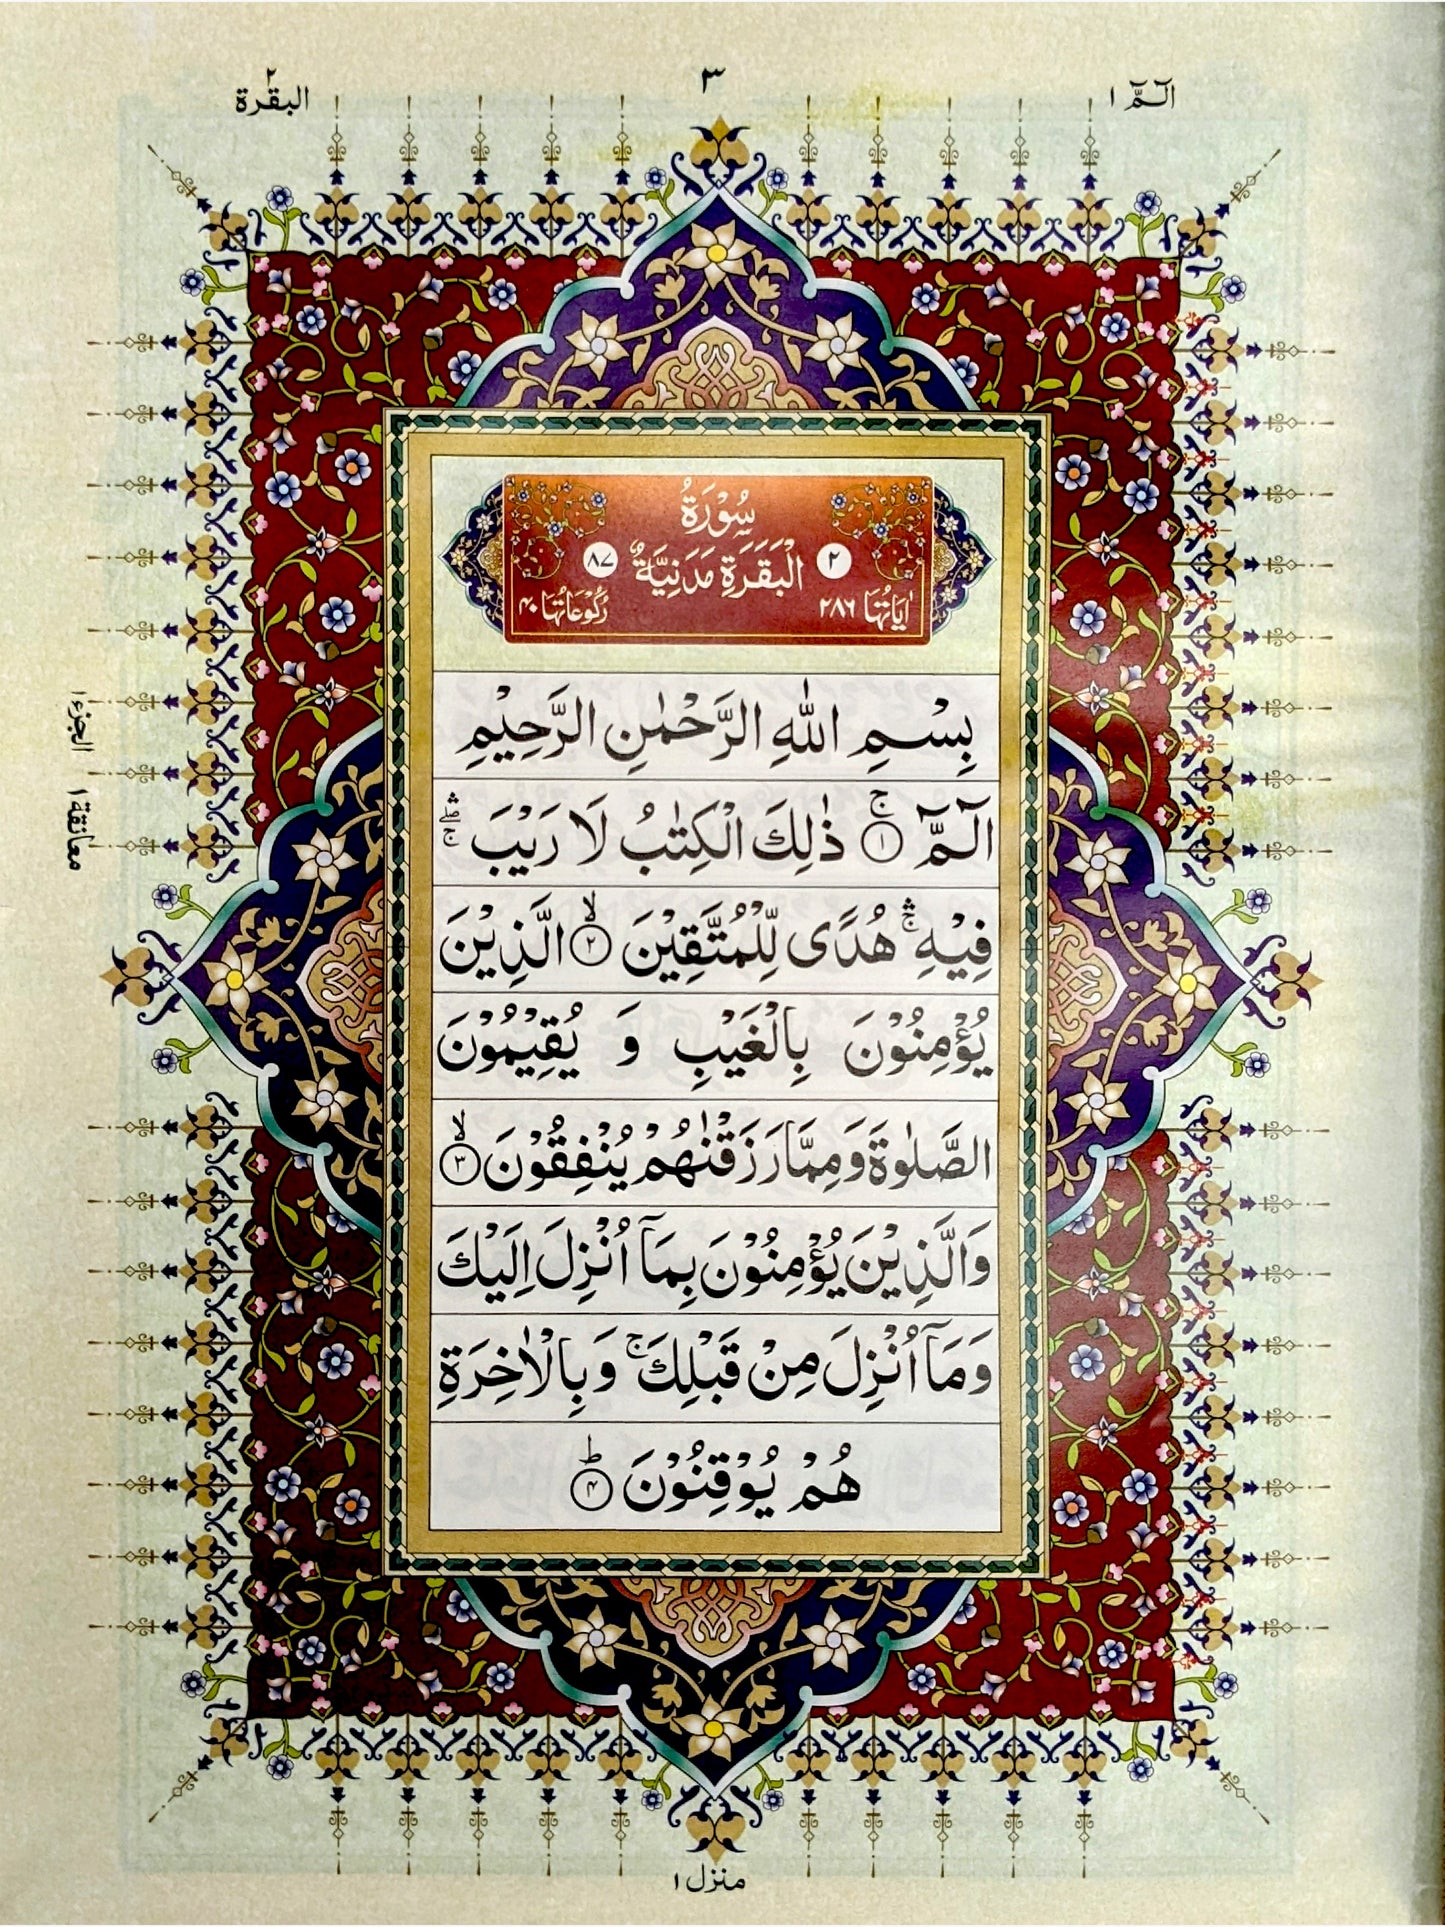 الٓمّٓ ١
٣
البقرة ٢
سُوْرَةُ
٢ الْبَقَرَةِ مَدَنِيَّةٌ ٨٧
اٰيَاتُهَا ٢٨٦ رُكُوْعَاتُهَا ٤٠
بِسْمِ اللّٰهِ الرَّحْمٰنِ الرَّحِيْمِ
الٓمّٓ ۚ ١ ذٰلِكَ الْكِتٰبُ لَا رَيْبَ ۛۖۚ
فِيْهِ ۛۚ هُدًى لِّلْمُتَّقِيْنَ ۙ ٢ الَّذِيْنَ
يُؤْمِنُوْنَ بِالْغَيْبِ وَ يُقِيْمُوْنَ
الصَّلٰوةَ وَمِمَّا رَزَقْنٰهُمْ يُنْفِقُوْنَ ۙ ٣
وَالَّذِيْنَ يُؤْمِنُوْنَ بِمَآ اُنْزِلَ اِلَيْكَ
وَمَآ اُنْزِلَ مِنْ قَبْلِكَ ۚ وَبِالْاٰخِرَةِ
هُمْ يُوْقِنُوْنَ ؕ ٤
معانقة ١ الجزء ١
منزل ١